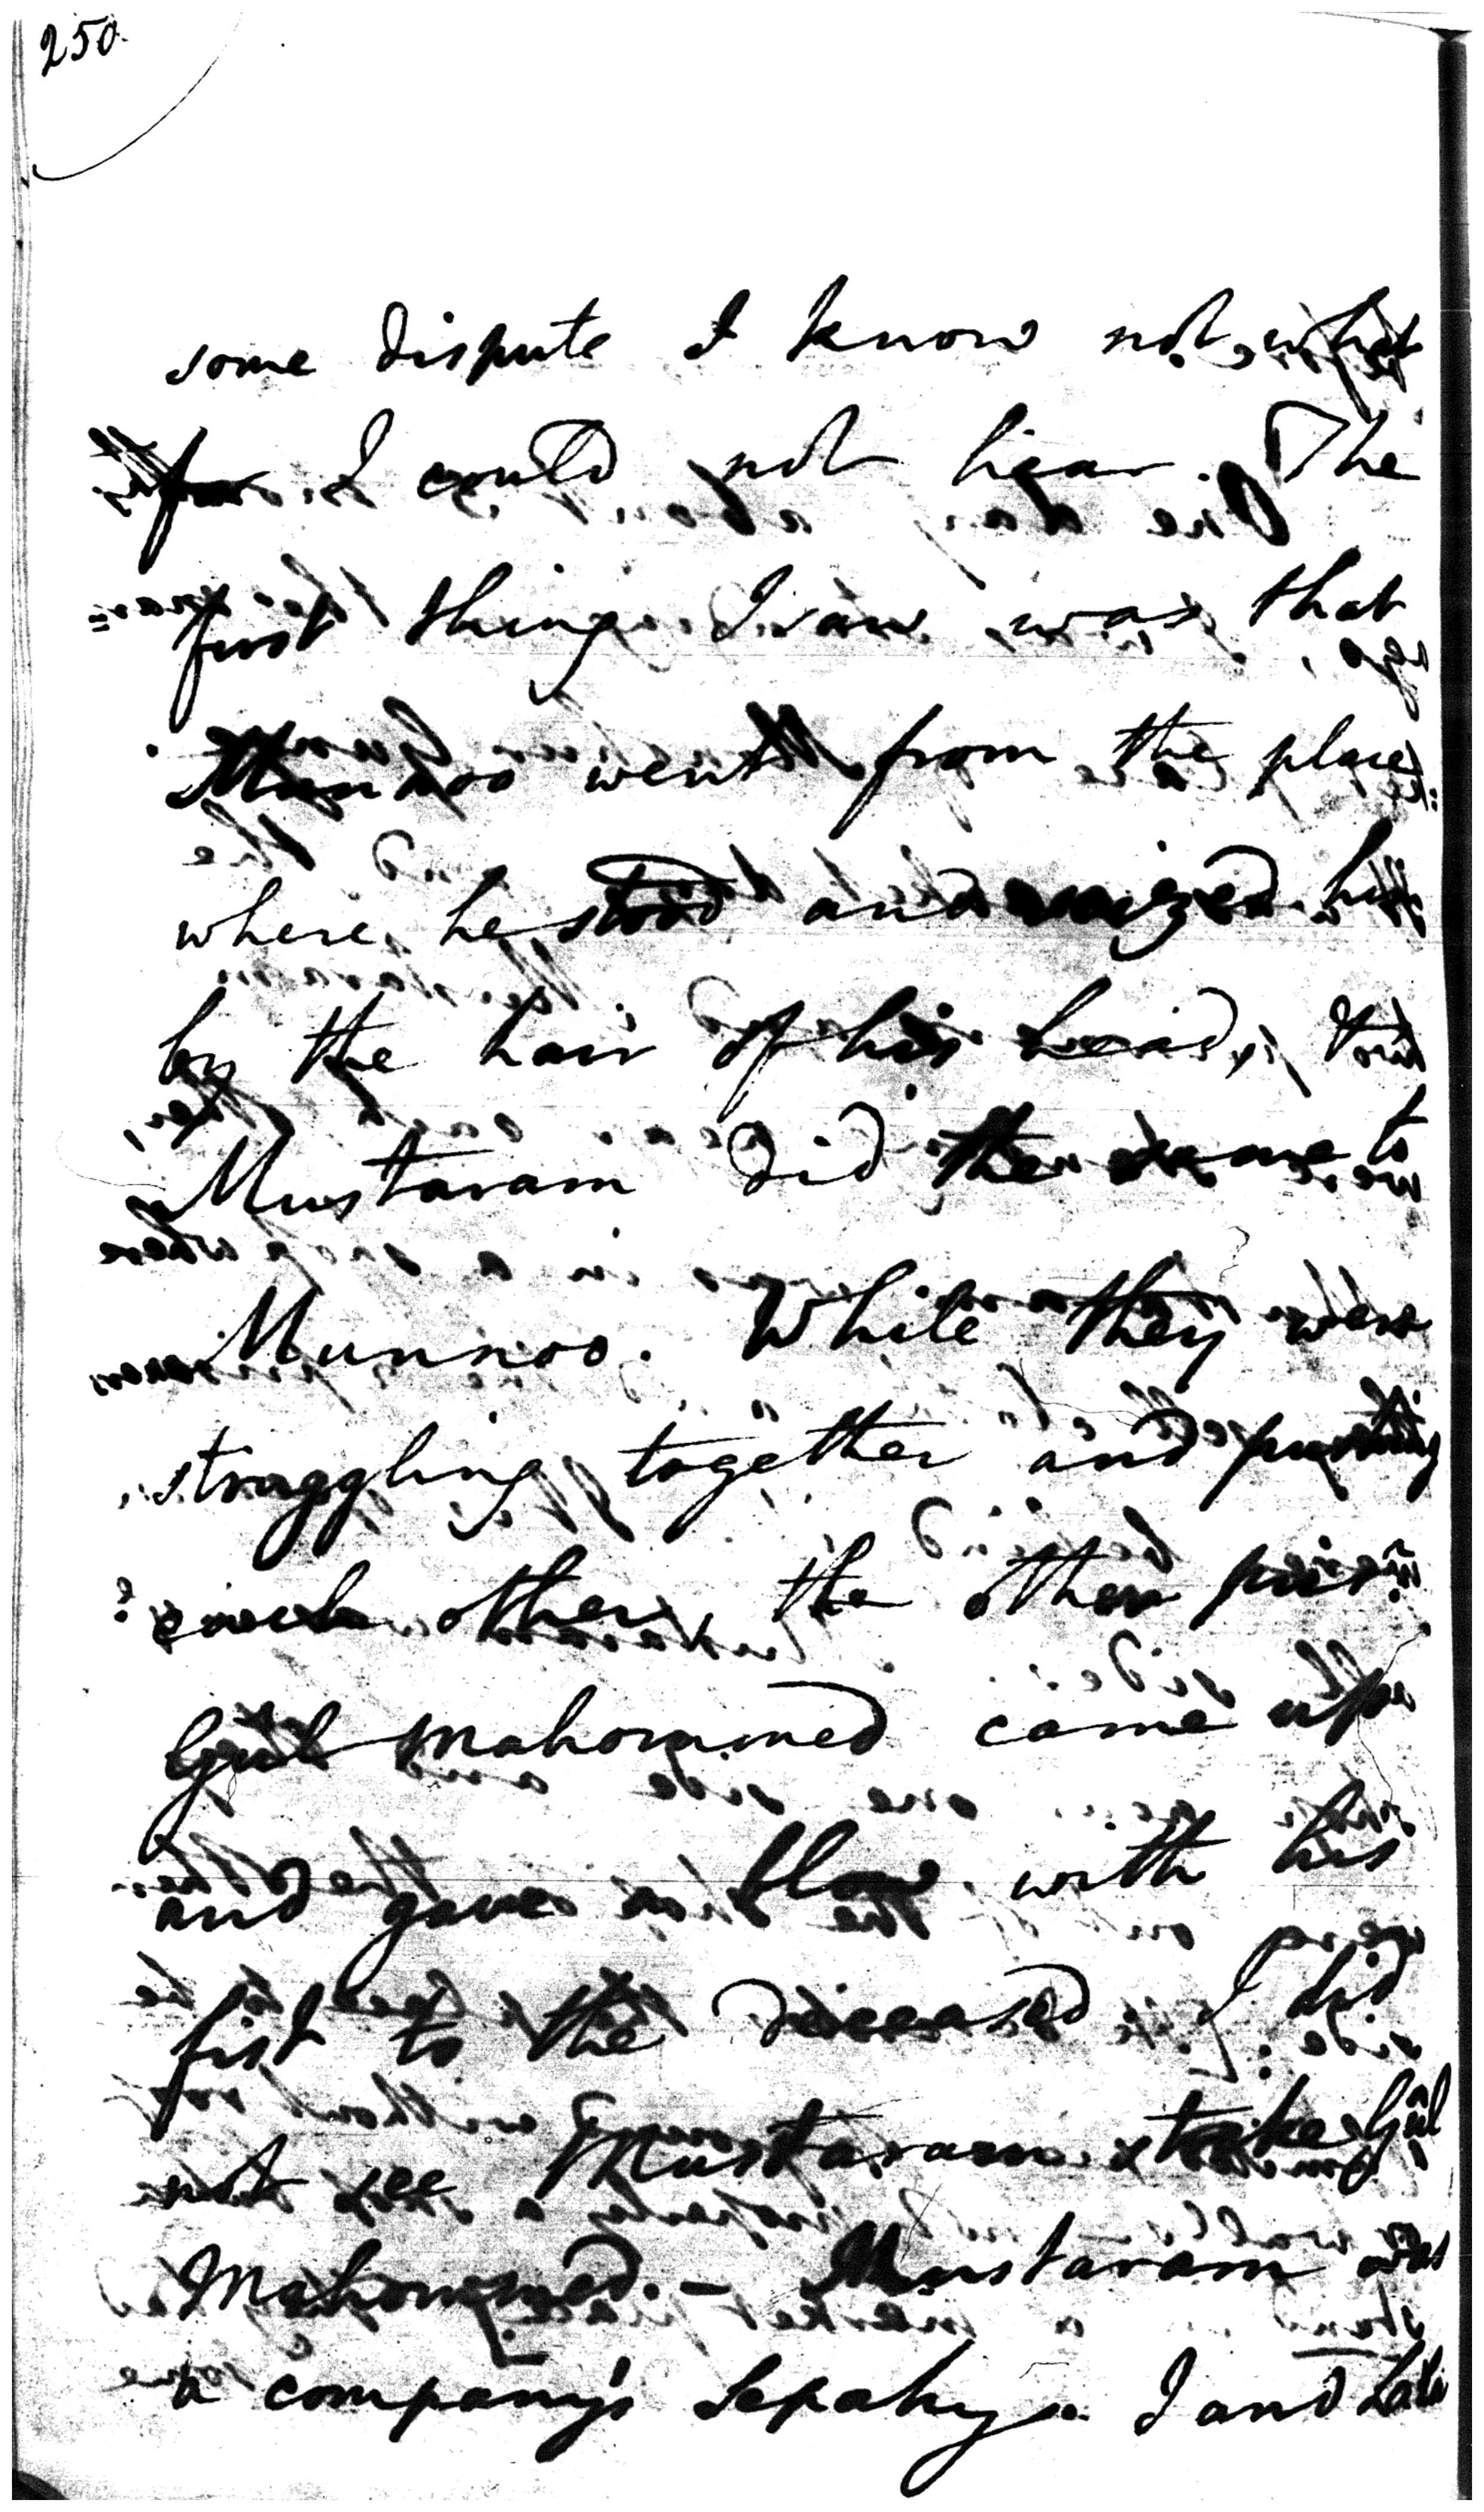 250.
some dispute I know not what
for I could not hear. The
first thing I saw was that
Munnoo went from the place
where he stood and seized him
by the hair of his head, that
Mustaram did the same to
Munnoo. While they were
straggling together and pushing
each other, the other prisr.
Gul Mahommed came up
and gave a blow with his
fist to the deceased. I did
not see Mustaram strike Gul
Mahommed. — Mustaram was
a company's Sepahy. I and